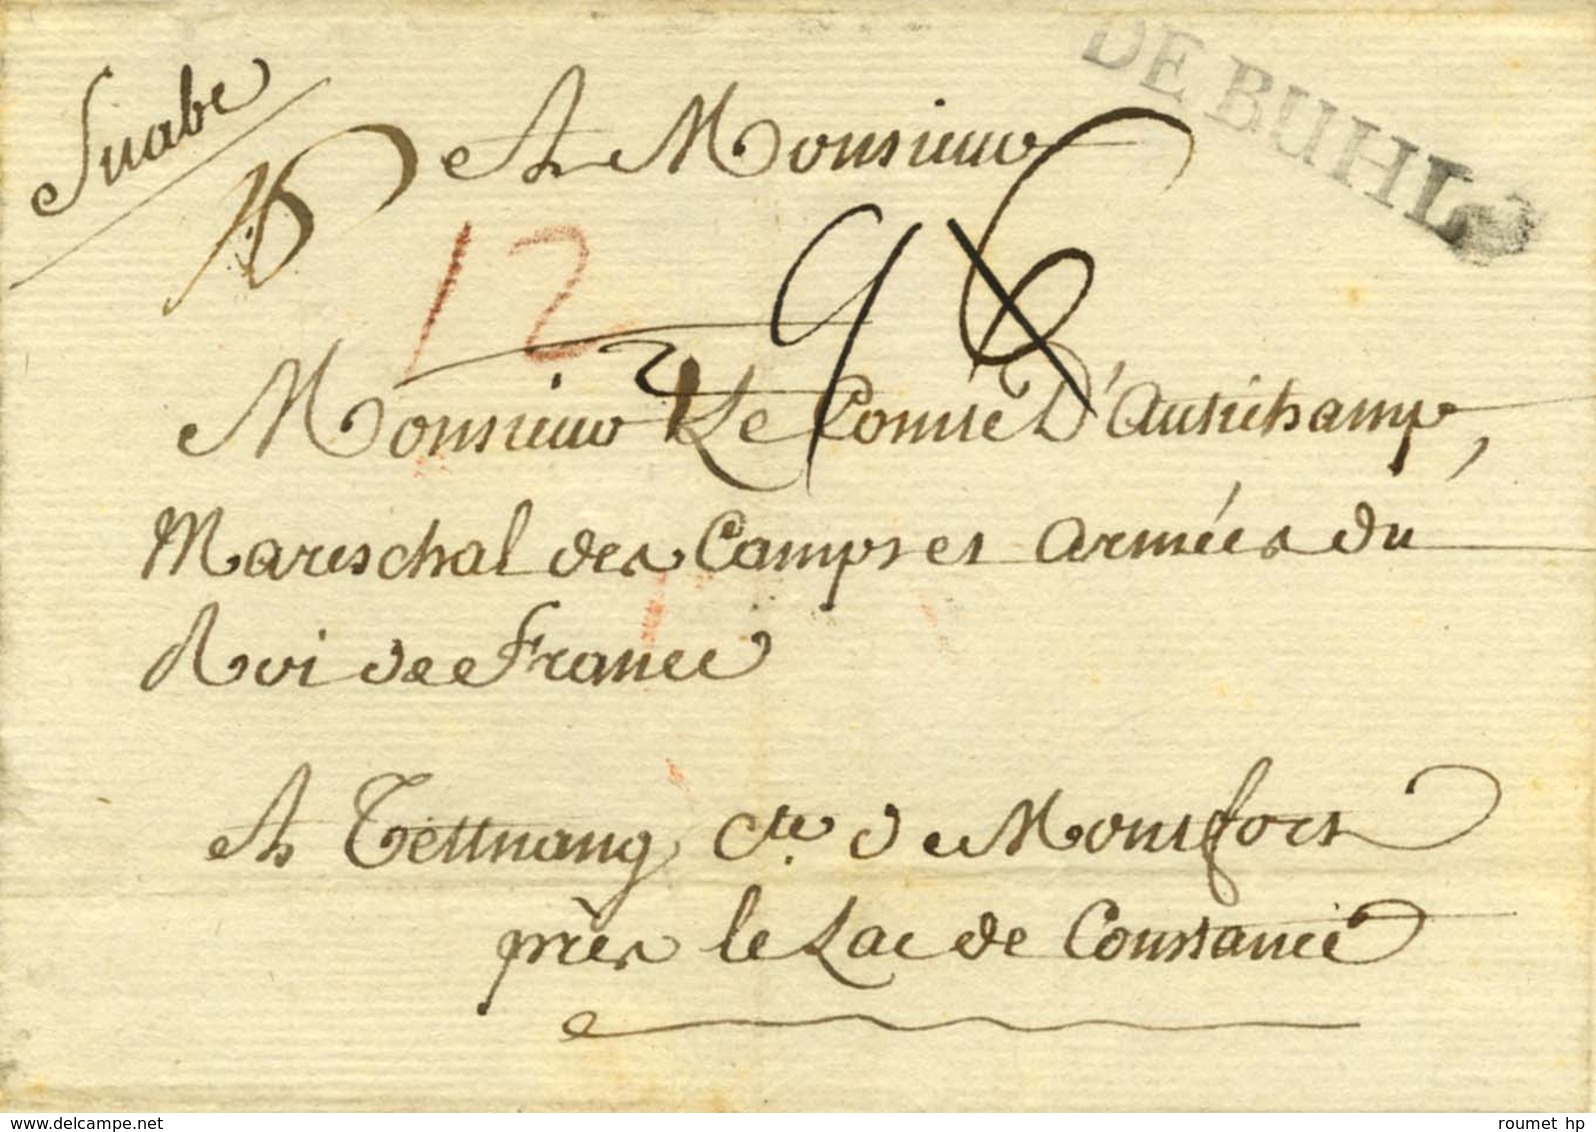 Suabe
DE BUHL
A Monsieur
12
9
6
Monsieur Le Comte D'Autichamp,
Mareschal des Camps et Armées du
Roi de France
A Tettnang Cté. de Montfort
près le Lac de Constance
www.delcampe.net
roumet hp